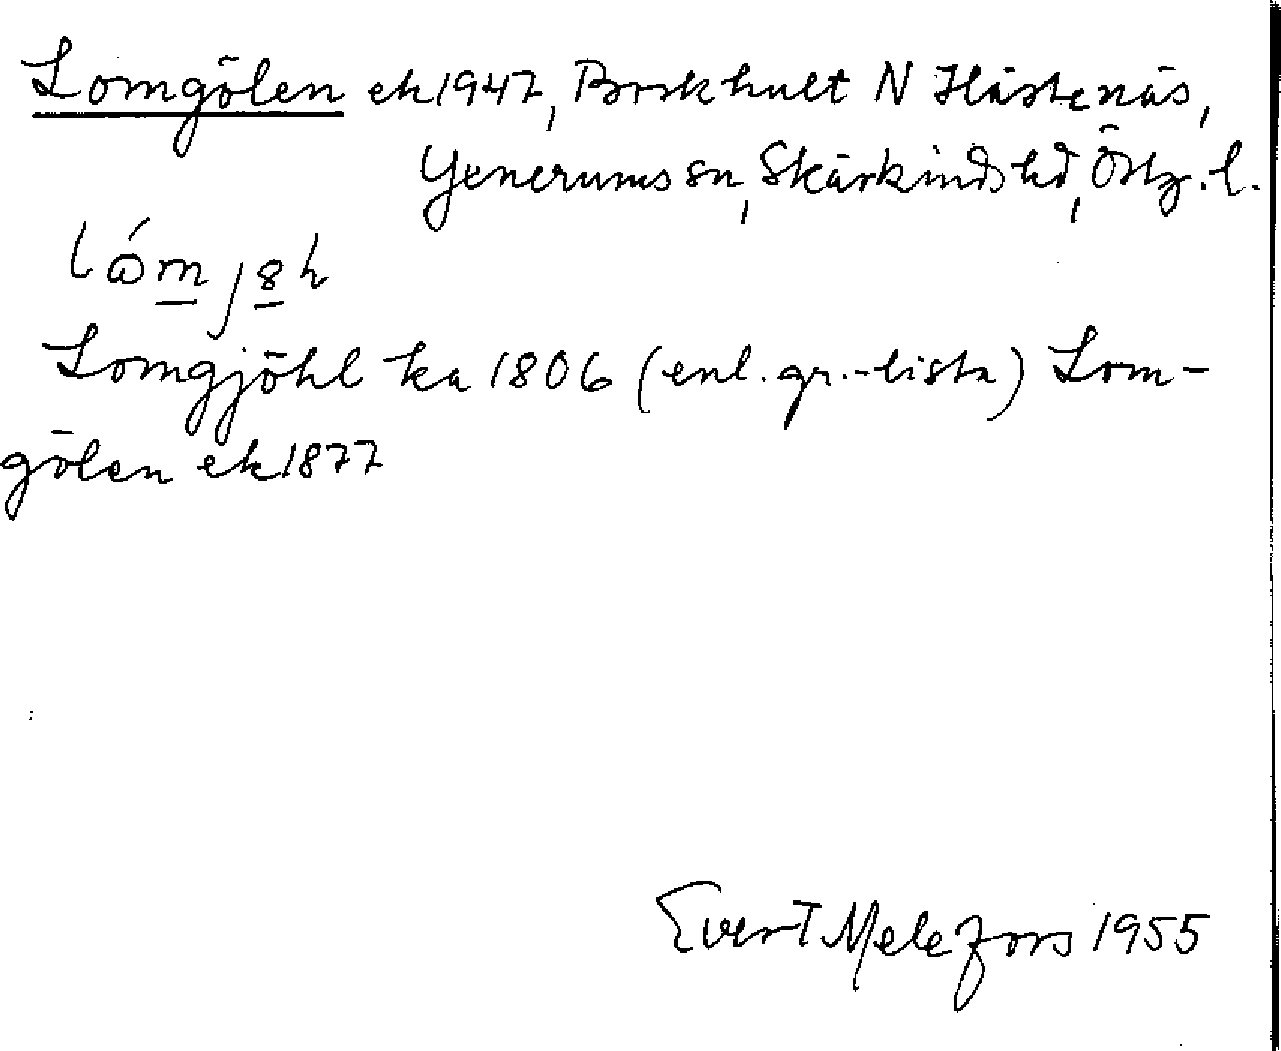 Lomgölen ek 1947, Borkhult N Hästenäs,
Yxnerums sn, Skärkinds hd, Östg.l.
Lomgjöhl ka 1806 (enl. gr.-lista) Lom-
gölen ek 1877
Evert Melefors 1955